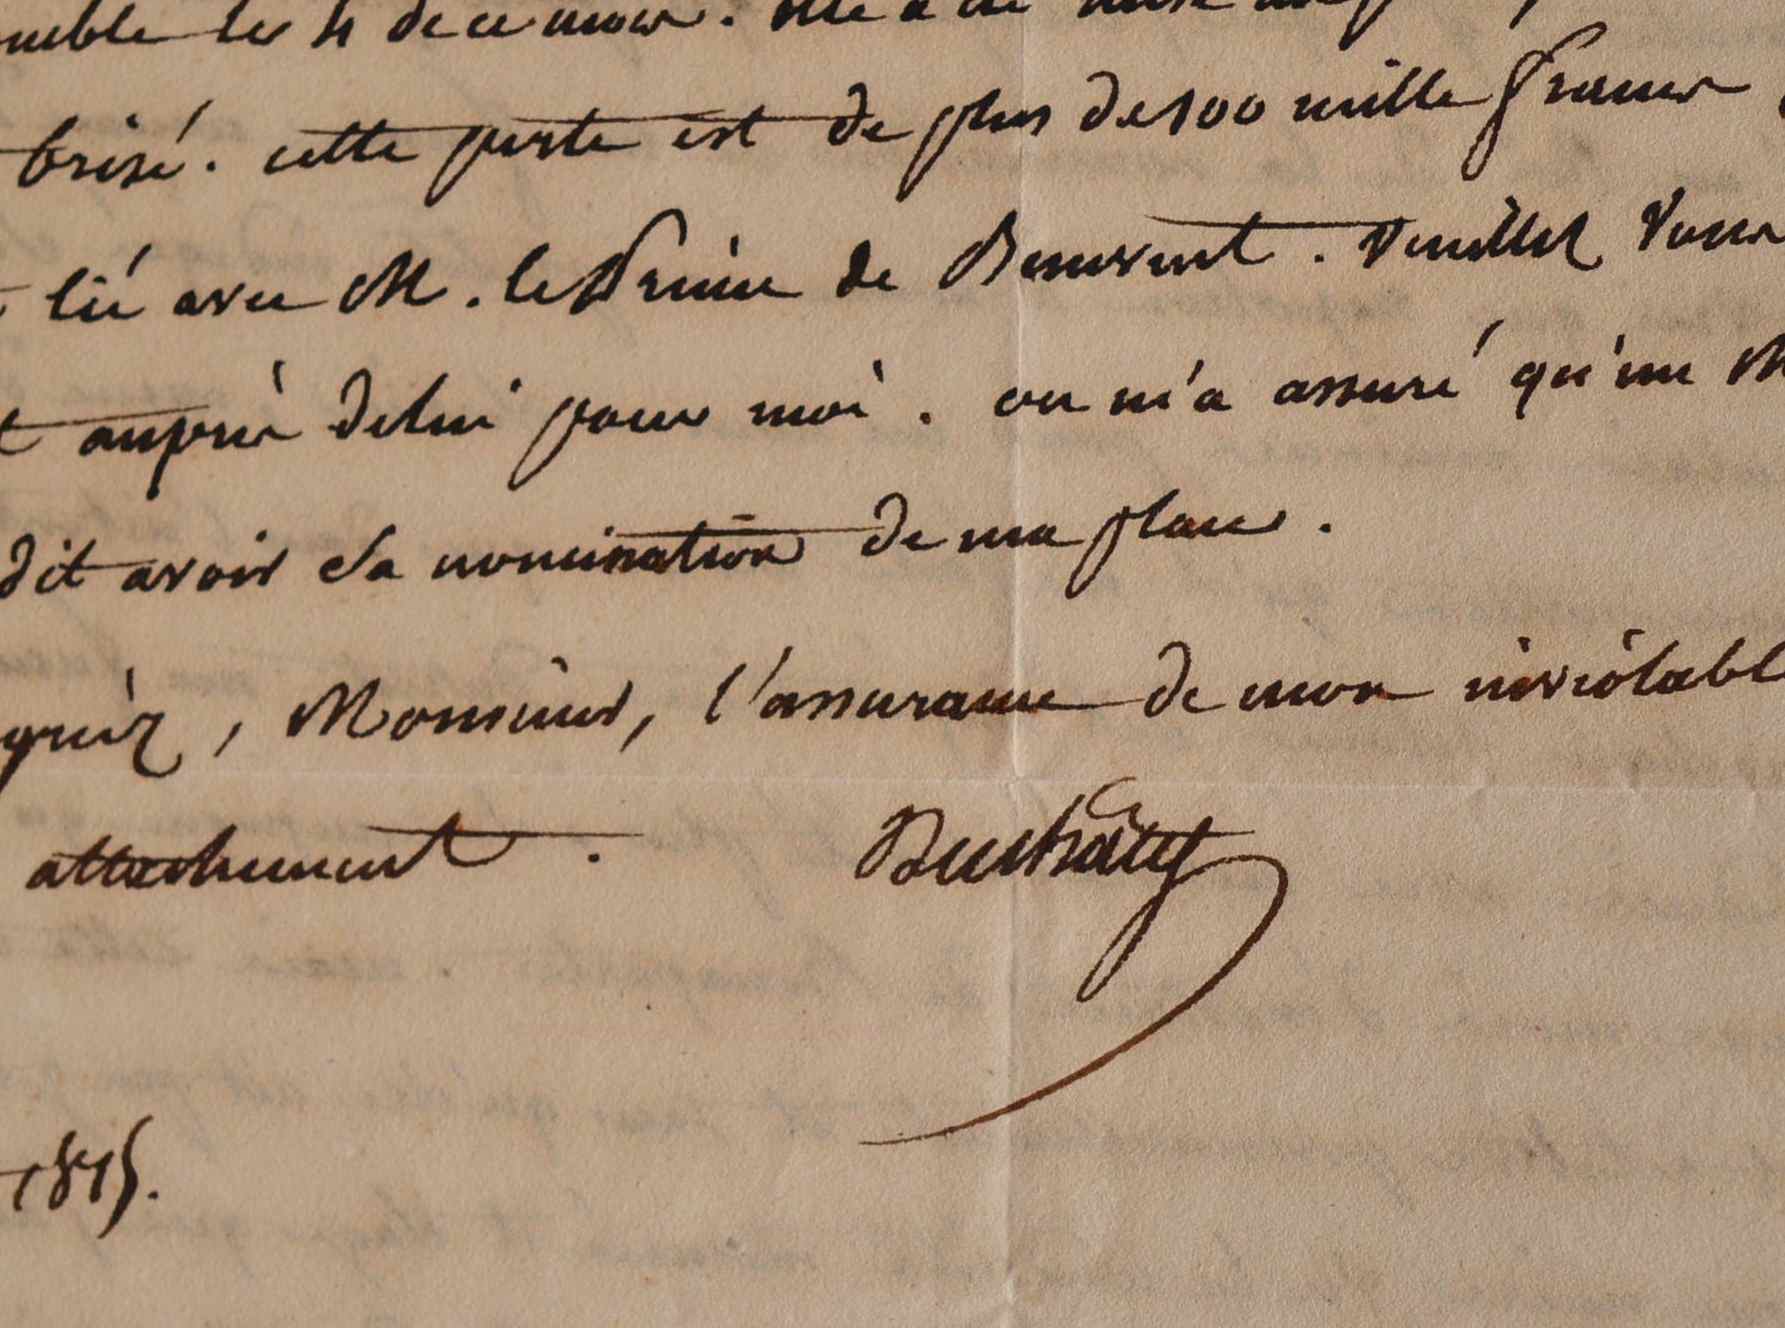 meuble le 4 de ce mois. elle a été
brisé. cette perte est de plus de 100 mille francs
lié avec M. le Prince de Benevent. Veuillez vous
t auprès de lui pour moi. on m'a assuré qu'un M
dit avoir sa nomination de ma place.
gréèz, Monsieur, l'assurance de mon inviolabl
attachement. Duchâtel
1815.